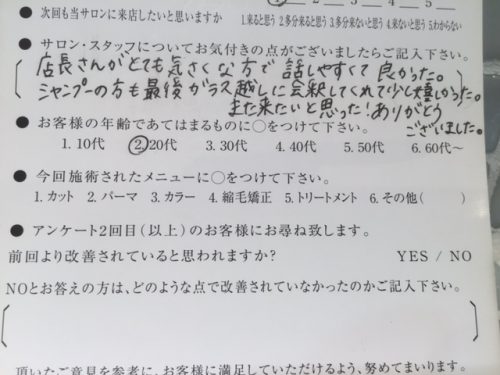 1 2 3 4 5
● 次回も当サロンに来店したいと思いますか 1.来ると思う 2.多分来ると思う 3.多分来ないと思う 4.来ないと思う 5.わからない
● サロン・スタッフについてお気付きの点がございましたらご記入下さい。
店長さんがとても気さくな方で 話しやすくて 良かった。
シャンプーの方も最後ガラス越しに会釈してくれて少し嬉しかった。
また来たいと思った!ありがとう
ございました。
● お客様の年齢であてはまるものに○をつけて下さい。
1. 10代 2. 20代 3. 30代 4. 40代 5. 50代 6. 60代〜
● 今回施術されたメニューに○をつけて下さい。
1. カット 2. パーマ 3. カラー 4. 縮毛矯正 5. トリートメント 6. その他( )
● アンケート2回目(以上)のお客様にお尋ね致します。
前回より改善されていると思われますか? YES / NO
NOとお答えの方は、どのような点で改善されていなかったのかご記入下さい。
頂いたご意見を参考に、お客様に満足していただけるよう、努めてまいります。